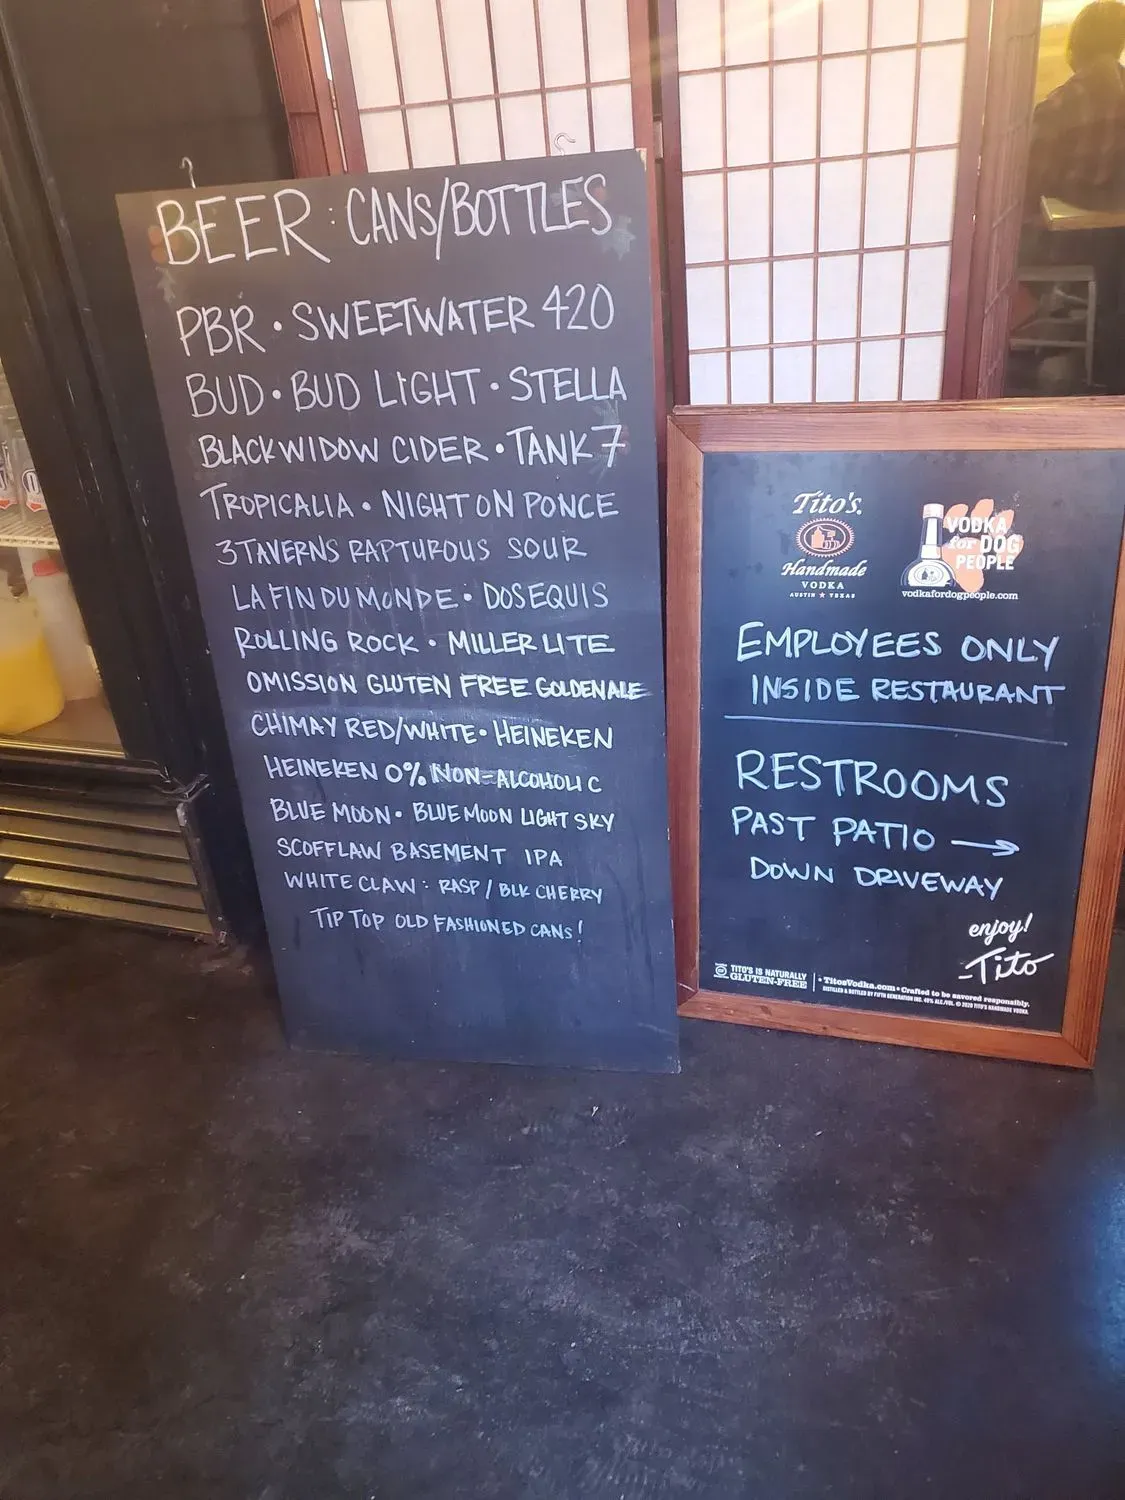 BEER : CANS/BOTTLES
PBR • SWEETWATER 420
BUD • BUD LIGHT • STELLA
BLACKWIDOW CIDER • TANK 7
TROPICALIA • NIGHT ON PONCE
3 TAVERNS RAPTUROUS SOUR
LA FIN DU MONDE • DOS EQUIS
ROLLING ROCK • MILLER LITE
OMISSION GLUTEN FREE GOLDEN ALE
CHIMAY RED/WHITE • HEINEKEN
HEINEKEN 0% NON-ALCOHOLIC
BLUE MOON • BLUE MOON LIGHT SKY
SCOFFLAW BASEMENT IPA
WHITE CLAW : RASP / BLK CHERRY
TIP TOP OLD FASHIONED CANS!
Tito's
Handmade
VODKA
AUSTIN ★ TEXAS
VODKA
for DOG
PEOPLE
vodkafordogpeople.com
EMPLOYEES ONLY
INSIDE RESTAURANT
RESTROOMS
PAST PATIO →
DOWN DRIVEWAY
enjoy!
-Tito
TITO'S IS NATURALLY
GLUTEN-FREE
• TitosVodka.com • Crafted to be savored responsibly.
DISTILLED & BOTTLED BY FIFTH GENERATION INC. 40% ALC./VOL. © 2020 TITO'S HANDMADE VODKA